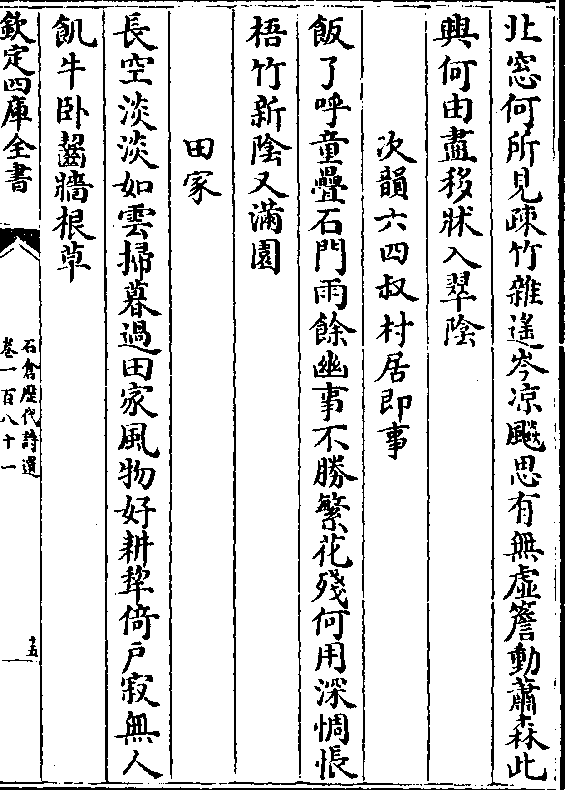 北窓何所見疎竹雜遙岑凉飈思有無虛簷動蕭森此
興何由盡移牀入翠陰
次韻六四叔村居即事
飯了呼童疊石門雨餘幽事不勝繁花殘何用深惆悵
梧竹新陰又滿園
田家
長空淡淡如雲掃暮過田家風物好耕犂倚戶寂無人
飢牛卧齧牆根草
欽定四庫全書
石倉歷代詩選
卷一百八十一
十五